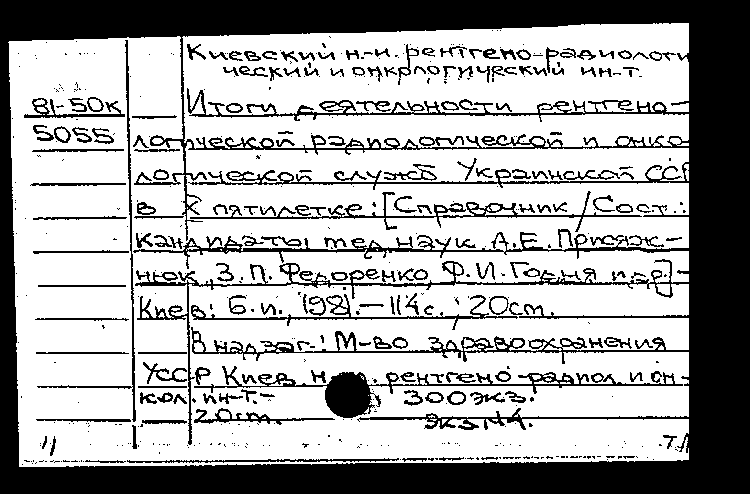 Киевский н-и. рентгено-радиологи
ческий и онкологический ин-т.
81-50к Итоги деятельности рентгено-
5055 логической, радиологической и онко
логической служб Украинской ССР
в X пятилетке: [Справочник / Сост.:
кандидаты мед. наук А.Е. Присяж-
нюк, З.П. Федоренко, Ф.И. Годня и др.] -
Киев: Б.и., 1981. - 114 с.; 20 см.
В надзаг.: М-во здравоохранения
УССР, Киев. н. рентгено-радиол. и он-
кол. ин-т. - 300 экз.
20 см. экз N4.
11